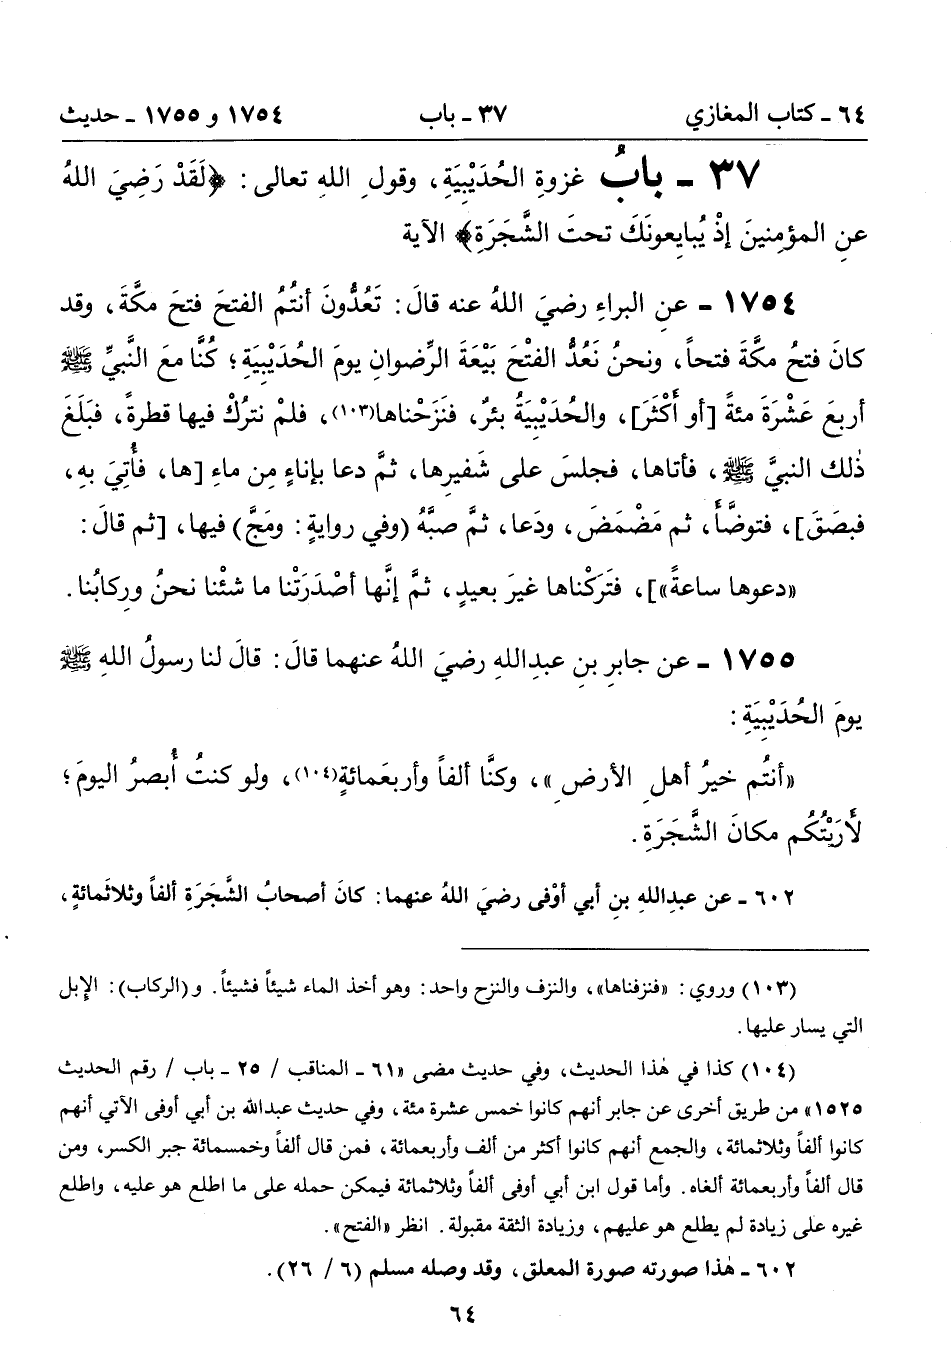 ٦٤ ـ كتاب المغازي ٣٧ ـ باب ١٧٥٤ و ١٧٥٥ ـ حديث
٣٧ ـ بابُ غزوةِ الحُدَيْبِيَةِ، وقولِ اللهِ تعالى: ﴿لَقَدْ رَضِيَ اللهُ
عنِ المؤمِنينَ إذْ يُبايِعونَكَ تحتَ الشَّجَرَةِ﴾ الآية
١٧٥٤ ـ عنِ البراءِ رضيَ اللهُ عنه قالَ: تَعُدُّونَ أنتُمُ الفتحَ فتحَ مكَّةَ، وقد
كانَ فتحُ مكَّةَ فتحاً، ونحنُ نَعُدُّ الفتْحَ بَيْعَةَ الرِّضوانِ يومَ الحُدَيْبِيَةِ؛ كُنَّا معَ النَّبيِّ ﷺ
أربعَ عَشْرَةَ مئةً [أو أَكْثَرَ]، والحُدَيْبِيَةُ بئرٌ، فنَزَحْناها(١٠٣)، فلمْ نترُكْ فيها قطرةً، فبَلَغَ
ذٰلك النبيَّ ﷺ، فأتاها، فجلسَ على شَفيرِها، ثمَّ دعا بإناءٍ مِن ماءِ [ها، فأُتِيَ بهِ،
فبصَقَ]، فتوضَّأَ، ثم مَضْمَضَ، ودَعا، ثمَّ صبَّهُ (وفي روايةٍ: ومَجَّ) فيها، [ثم قالَ:
«دعوها ساعةً»]، فتَرَكْناها غيرَ بعيدٍ، ثمَّ إنَّها أصْدَرَتْنا ما شئْنا نحنُ ورِكابُنا.
١٧٥٥ ـ عن جابرِ بنِ عبدِاللهِ رضيَ اللهُ عنهما قالَ: قالَ لنا رسولُ اللهِ ﷺ
يومَ الحُدَيْبِيَةِ:
«أنتُم خيرُ أهلِ الأرضِ»، وكنَّا ألفاً وأربعَمائةٍ(١٠٤)، ولو كنتُ أُبصرُ اليومَ؛
لأَرَيْتُكُم مكانَ الشَّجَرَةِ.
٦٠٢ ـ عن عبدِاللهِ بنِ أبي أوْفى رضيَ اللهُ عنهما: كانَ أصحابُ الشَّجَرَةِ ألفاً وثلاثَمائةٍ،
(١٠٣) وروي: «فنزفناها»، والنزف والنزح واحد: وهو أخذ الماء شيئاً فشيئاً. و(الركاب): الإبل
التي يسار عليها.
(١٠٤) كذا في هٰذا الحديث، وفي حديث مضى «٦١ ـ المناقب / ٢٥ ـ باب / رقم الحديث
١٥٢٥» من طريق أخرى عن جابر أنهم كانوا خمس عشرة مئة، وفي حديث عبدالله بن أبي أوفى الآتي أنهم
كانوا ألفاً وثلاثمائة، والجمع أنهم كانوا أكثر من ألف وأربعمائة، فمن قال ألفاً وخمسمائة جبر الكسر، ومن
قال ألفاً وأربعمائة ألغاه. وأما قول ابن أبي أوفى ألفاً وثلاثمائة فيمكن حمله على ما اطلع هو عليه، واطلع
غيره على زيادة لم يطلع هو عليهم، وزيادة الثقة مقبولة. انظر «الفتح».
٦٠٢ ـ هٰذا صورته صورة المعلق، وقد وصله مسلم (٦ / ٢٦).
٦٤